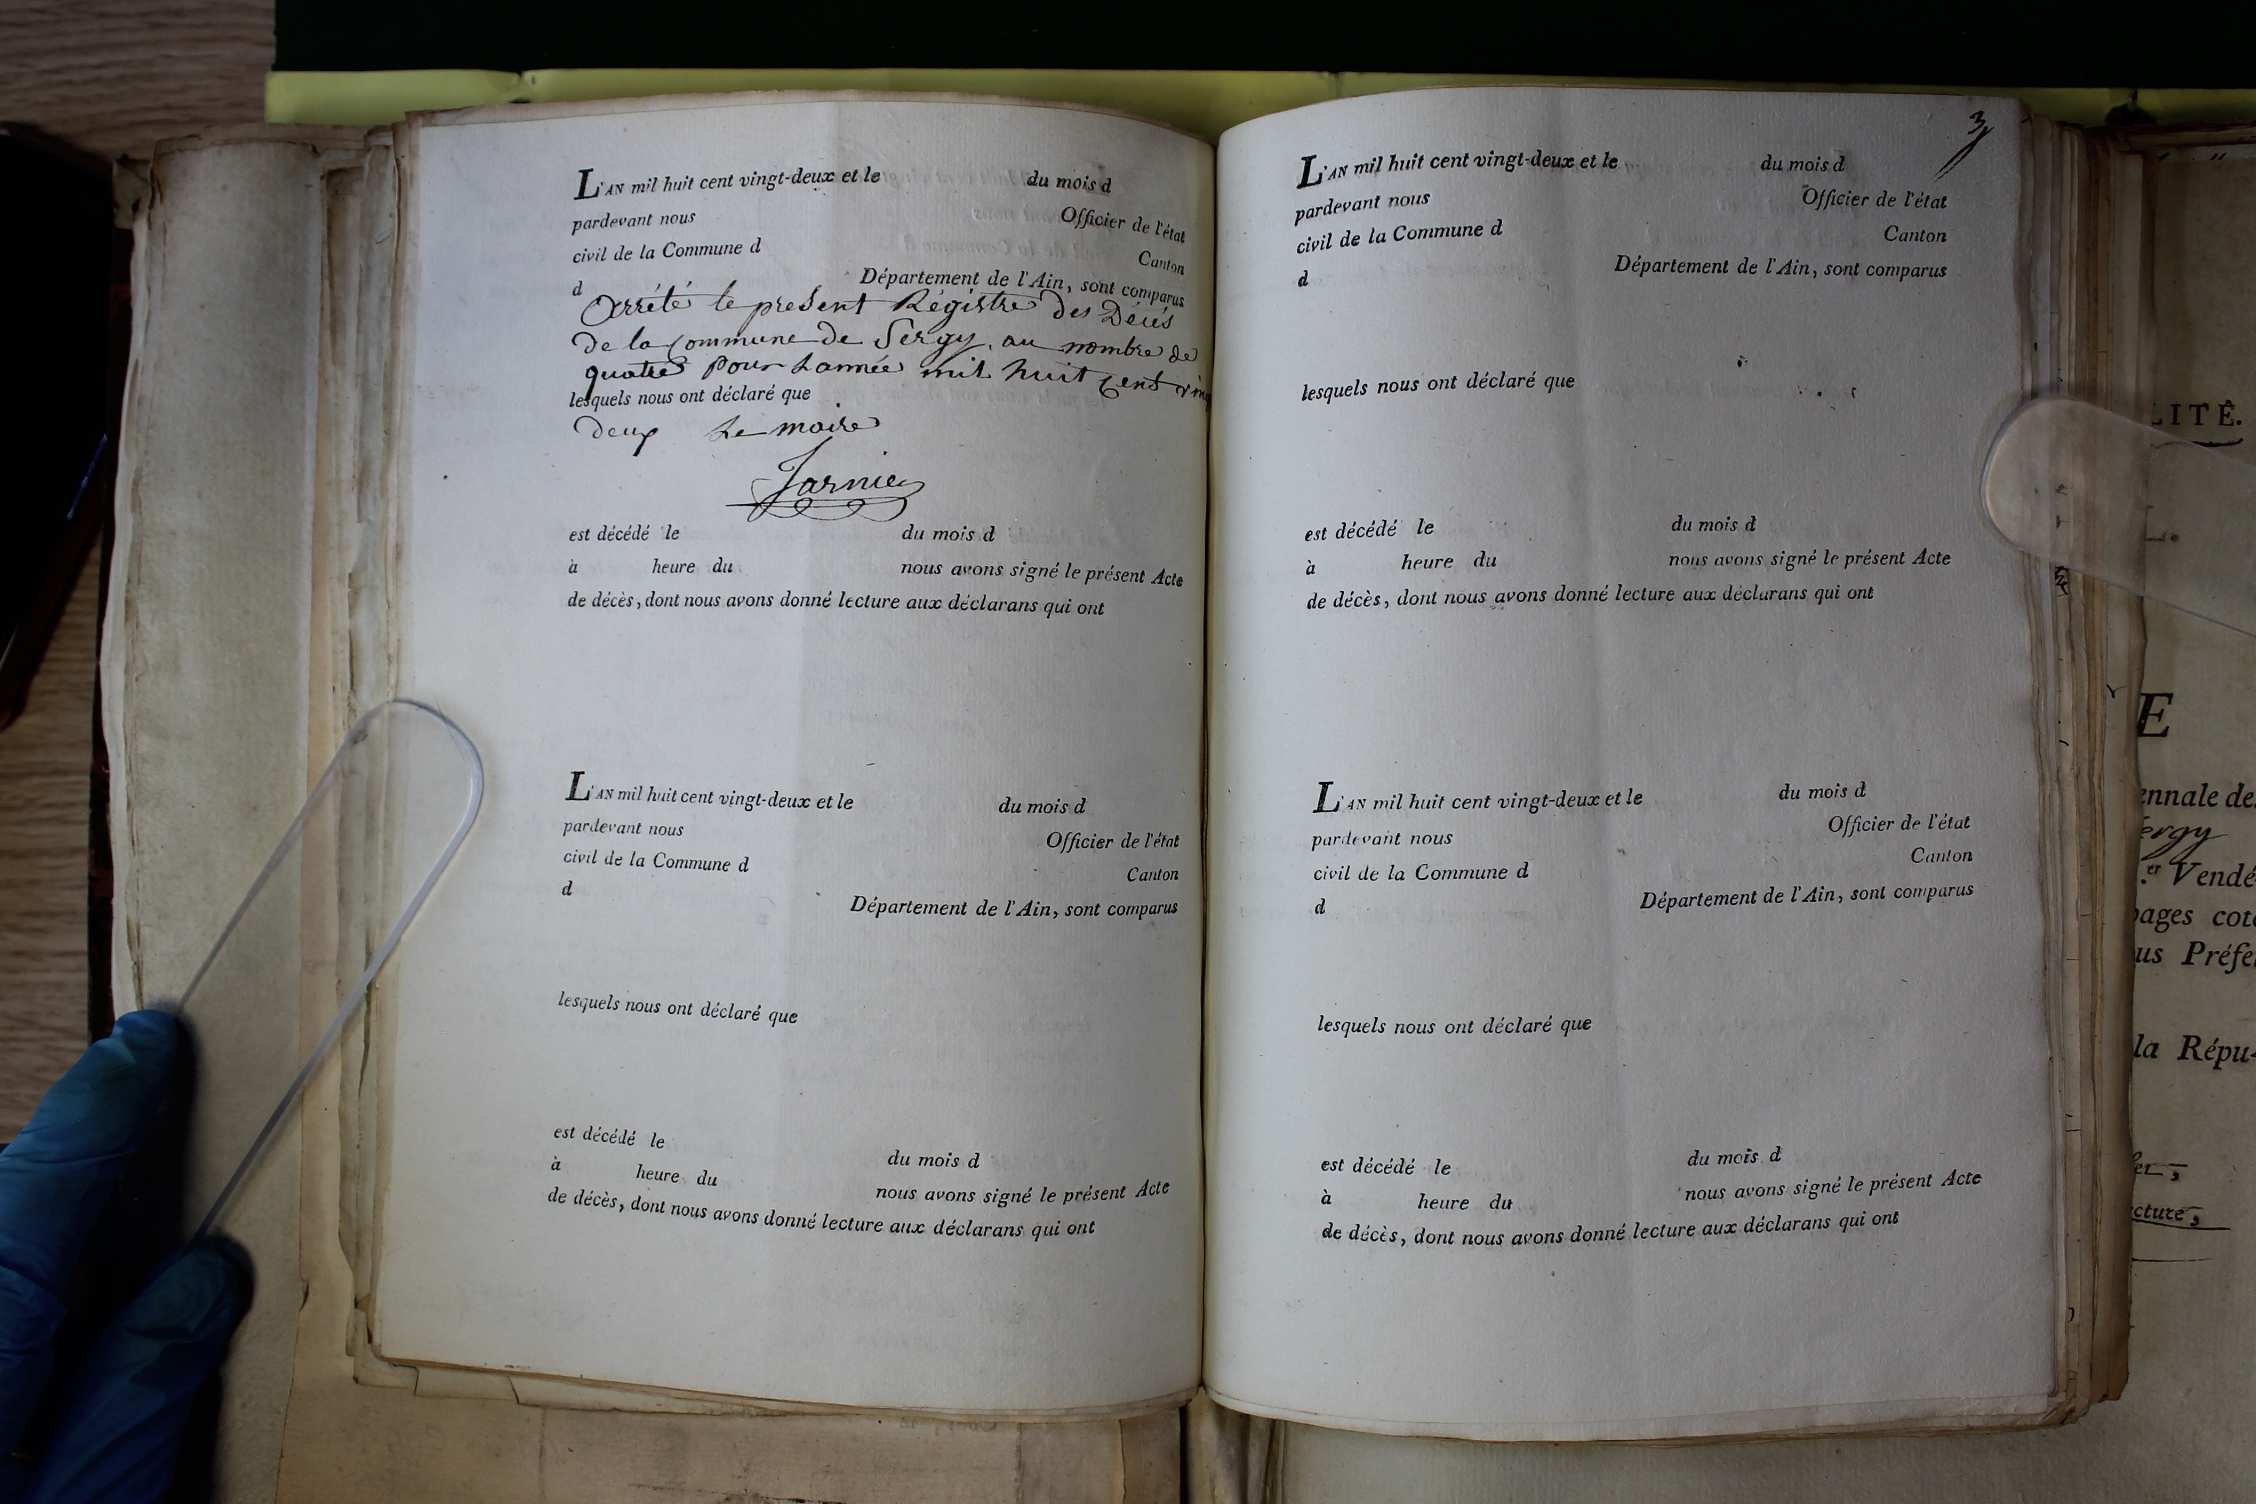 L'AN mil huit cent vingt-deux et le du mois d
pardevant nous Officier de l'état
civil de la Commune d Canton
d Département de l'Ain, sont comparus
Arrêté le present Régistre des Décés
de la Commune de Sergy, au nombre de
quatre pour Lannée mil huit Cent ving
lesquels nous ont déclaré que
deux Le maire
est décédé le du mois d
à heure du nous avons signé le présent Acte
de décès, dont nous avons donné lecture aux déclarans qui ont
L'AN mil huit cent vingt-deux et le du mois d
pardevant nous Officier de l'état
civil de la Commune d Canton
d Département de l'Ain, sont comparus
lesquels nous ont déclaré que
est décédé le du mois d
à heure du nous avons signé le présent Acte
de décès, dont nous avons donné lecture aux déclarans qui ont
3
L'AN mil huit cent vingt-deux et le du mois d
pardevant nous Officier de l'état
civil de la Commune d Canton
d Département de l'Ain, sont comparus
lesquels nous ont déclaré que
est décédé le du mois d
à heure du nous avons signé le présent Acte
de décès, dont nous avons donné lecture aux déclarans qui ont
L'AN mil huit cent vingt-deux et le du mois d
pardevant nous Officier de l'état
civil de la Commune d Canton
d Département de l'Ain, sont comparus
lesquels nous ont déclaré que
est décédé le du mois d
à heure du nous avons signé le présent Acte
de décès, dont nous avons donné lecture aux déclarans qui ont
LITÉ.
E
ennale de
ergy
er Vendé
pages coté
us Préfe
la Répu-
cture,